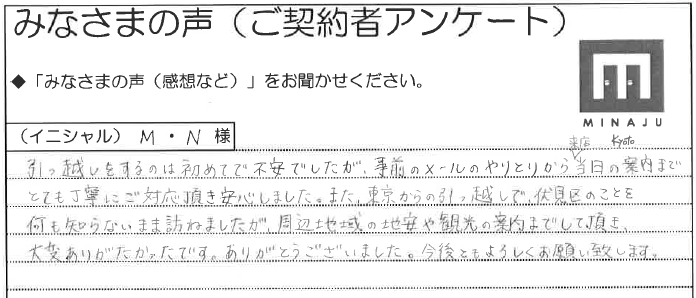 みなさまの声（ご契約者アンケート）
◆「みなさまの声（感想など）」をお聞かせください。
MINAJU
Kyoto
（イニシャル） M・N 様
来店
引っ越しをするのは初めてで不安でしたが、事前のメールのやりとりから当日の案内まで
とても丁寧にご対応頂き安心しました。また、東京からの引っ越しで、伏見区のことを
何も知らないまま訪ねましたが、周辺地域の地安や観光の案内までして頂き、
大変ありがたかったです。ありがとうございました。今後ともよろしくお願い致します。